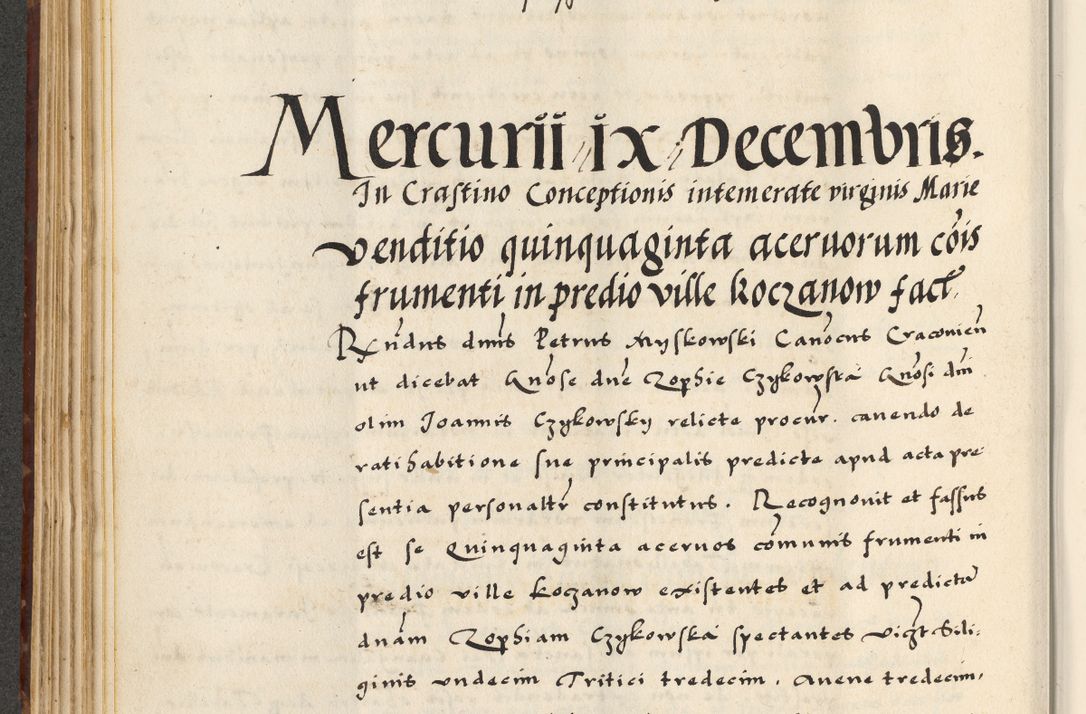 Mercurii ix Decembris.
In Crastino Conceptionis intemerate virginis Marie
venditio quinquaginta aceruorum cōis
frumenti in predio ville koczanow fact.
Rn̄dus dnus Petrus Myskowski Canocus Cracovien
ut dicebat Gnōse dnē Zophie Czykowska Gnōsi dni
olim Joannis Czykowskij relicte procur. cauendo de
ratihabitione sue principalis predicte apud acta pre
sentia personaltr constitutus. Recognouit et fassus
est se Quinquaginta aceruos cōmunis frumenti in
predio ville koczanow existentes et ad predictā
dnam Zophiam Czykowska spectantes vīczt Sili:
ginis vndecim Tritici tredecim. Auene tredecim,